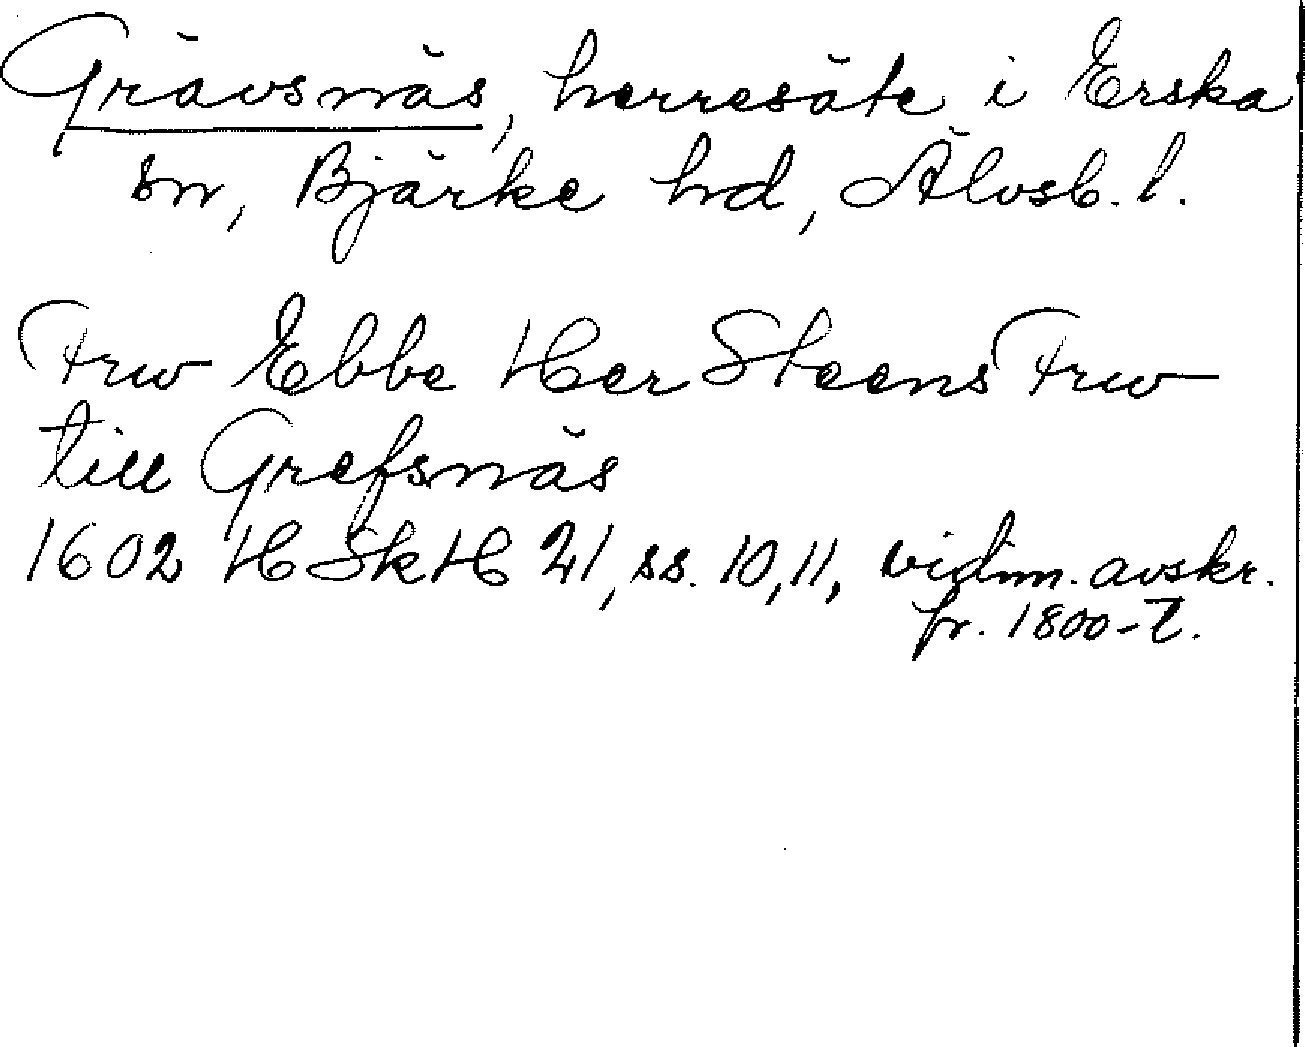 Grävsnäs, herresäte i Erska
sn, Bjärke hd, Älvsb. l.
Frw Ebbe Her Steens Frw
till Grefsnäs
1602 HSkH 21, ss. 10, 11, vidim. avskr.
fr. 1800-t.